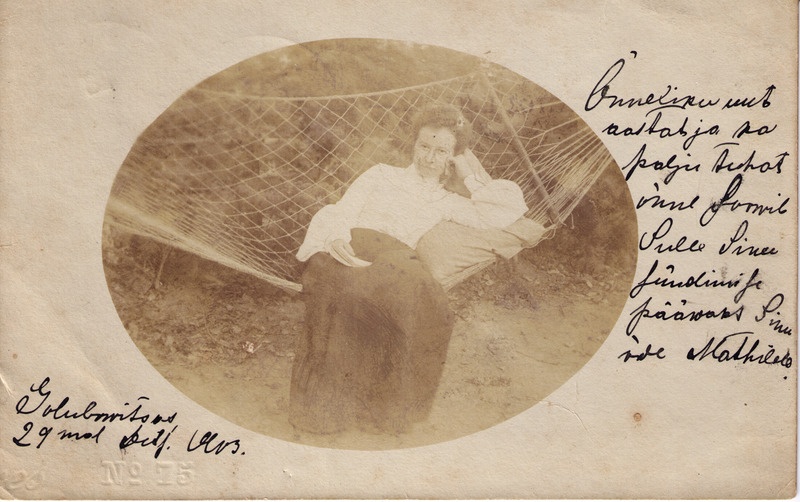 Õnneliku uut
aastat ja ka
palju tuhat
õnne Soowib
Sulle Sinu
sündimise
pääwaks Sinu
õde Mathilde.
Golubowitzas
29 mal Dets. 1903.
No 75